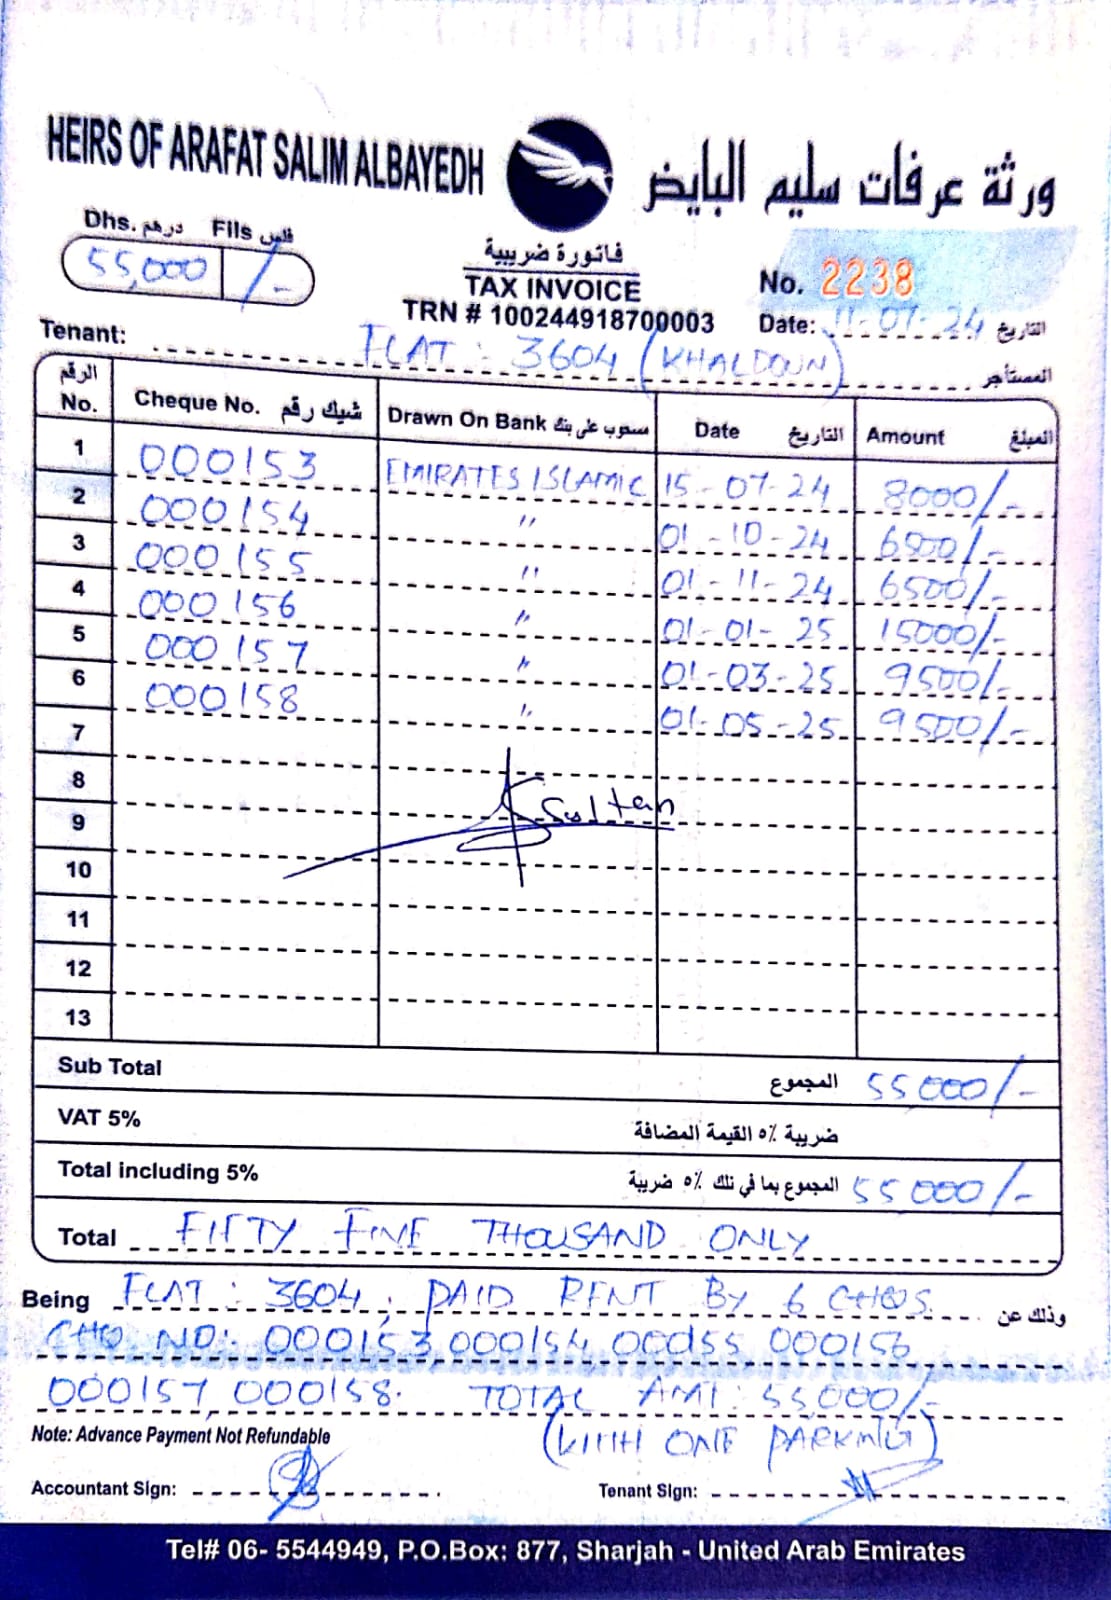 HEIRS OF ARAFAT SALIM ALBAYEDH ورثة عرفات سليم البايض
Dhs. درهم Fils فلس
55,000 /-
فاتورة ضريبية
TAX INVOICE
TRN # 100244918700003
No. 2238
Date: 11-07-24 التاريخ
Tenant: FLAT : 3604 (KHALDOUN) المستأجر
الرقم No. Cheque No. شيك رقم Drawn On Bank مسحوب على بنك Date التاريخ Amount المبلغ
1 000153 EMIRATES ISLAMIC 15-07-24 8000/-
2 000154 " 01-10-24 6500/-
3 000155 " 01-11-24 6500/-
4 000156 " 01-01-25 15000/-
5 000157 " 01-03-25 9500/-
6 000158 " 01-05-25 9500/-
7
8
Sultan
9
10
11
12
13
Sub Total المجموع 55000/-
VAT 5% ضريبة ٥٪ القيمة المضافة
Total including 5% المجموع بما في تلك ٥٪ ضريبة 55000/-
Total FIFTY FIVE THOUSAND ONLY
Being FLAT : 3604, PAID RENT BY 6 CHQS. وذلك عن
CHQ NO: 000153,000154 000155 000156
000157,000158. TOTAL AMT : 55000/-
Note: Advance Payment Not Refundable (WITH ONE PARKING)
Accountant Sign: Tenant Sign:
Tel# 06- 5544949, P.O.Box: 877, Sharjah - United Arab Emirates